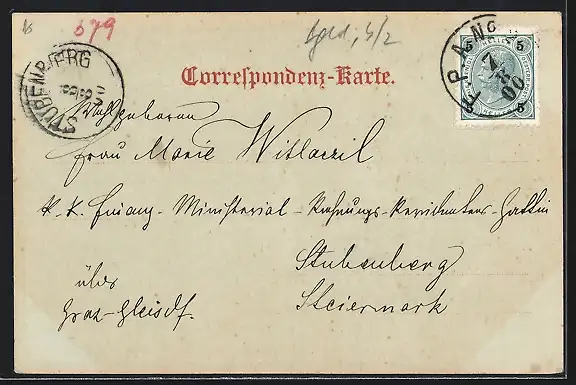 679
Correspondenz-Karte.
STUBENBERG
FRANS
7 8 00
5 5
5 5
Wohlgeboren
Frau Marie Witlaczil
k. k. Finanz-Ministerial-Rechnungs-Revidentens-Gattin
Stubenberg
über
Steiermark
Graz-Gleisdf.